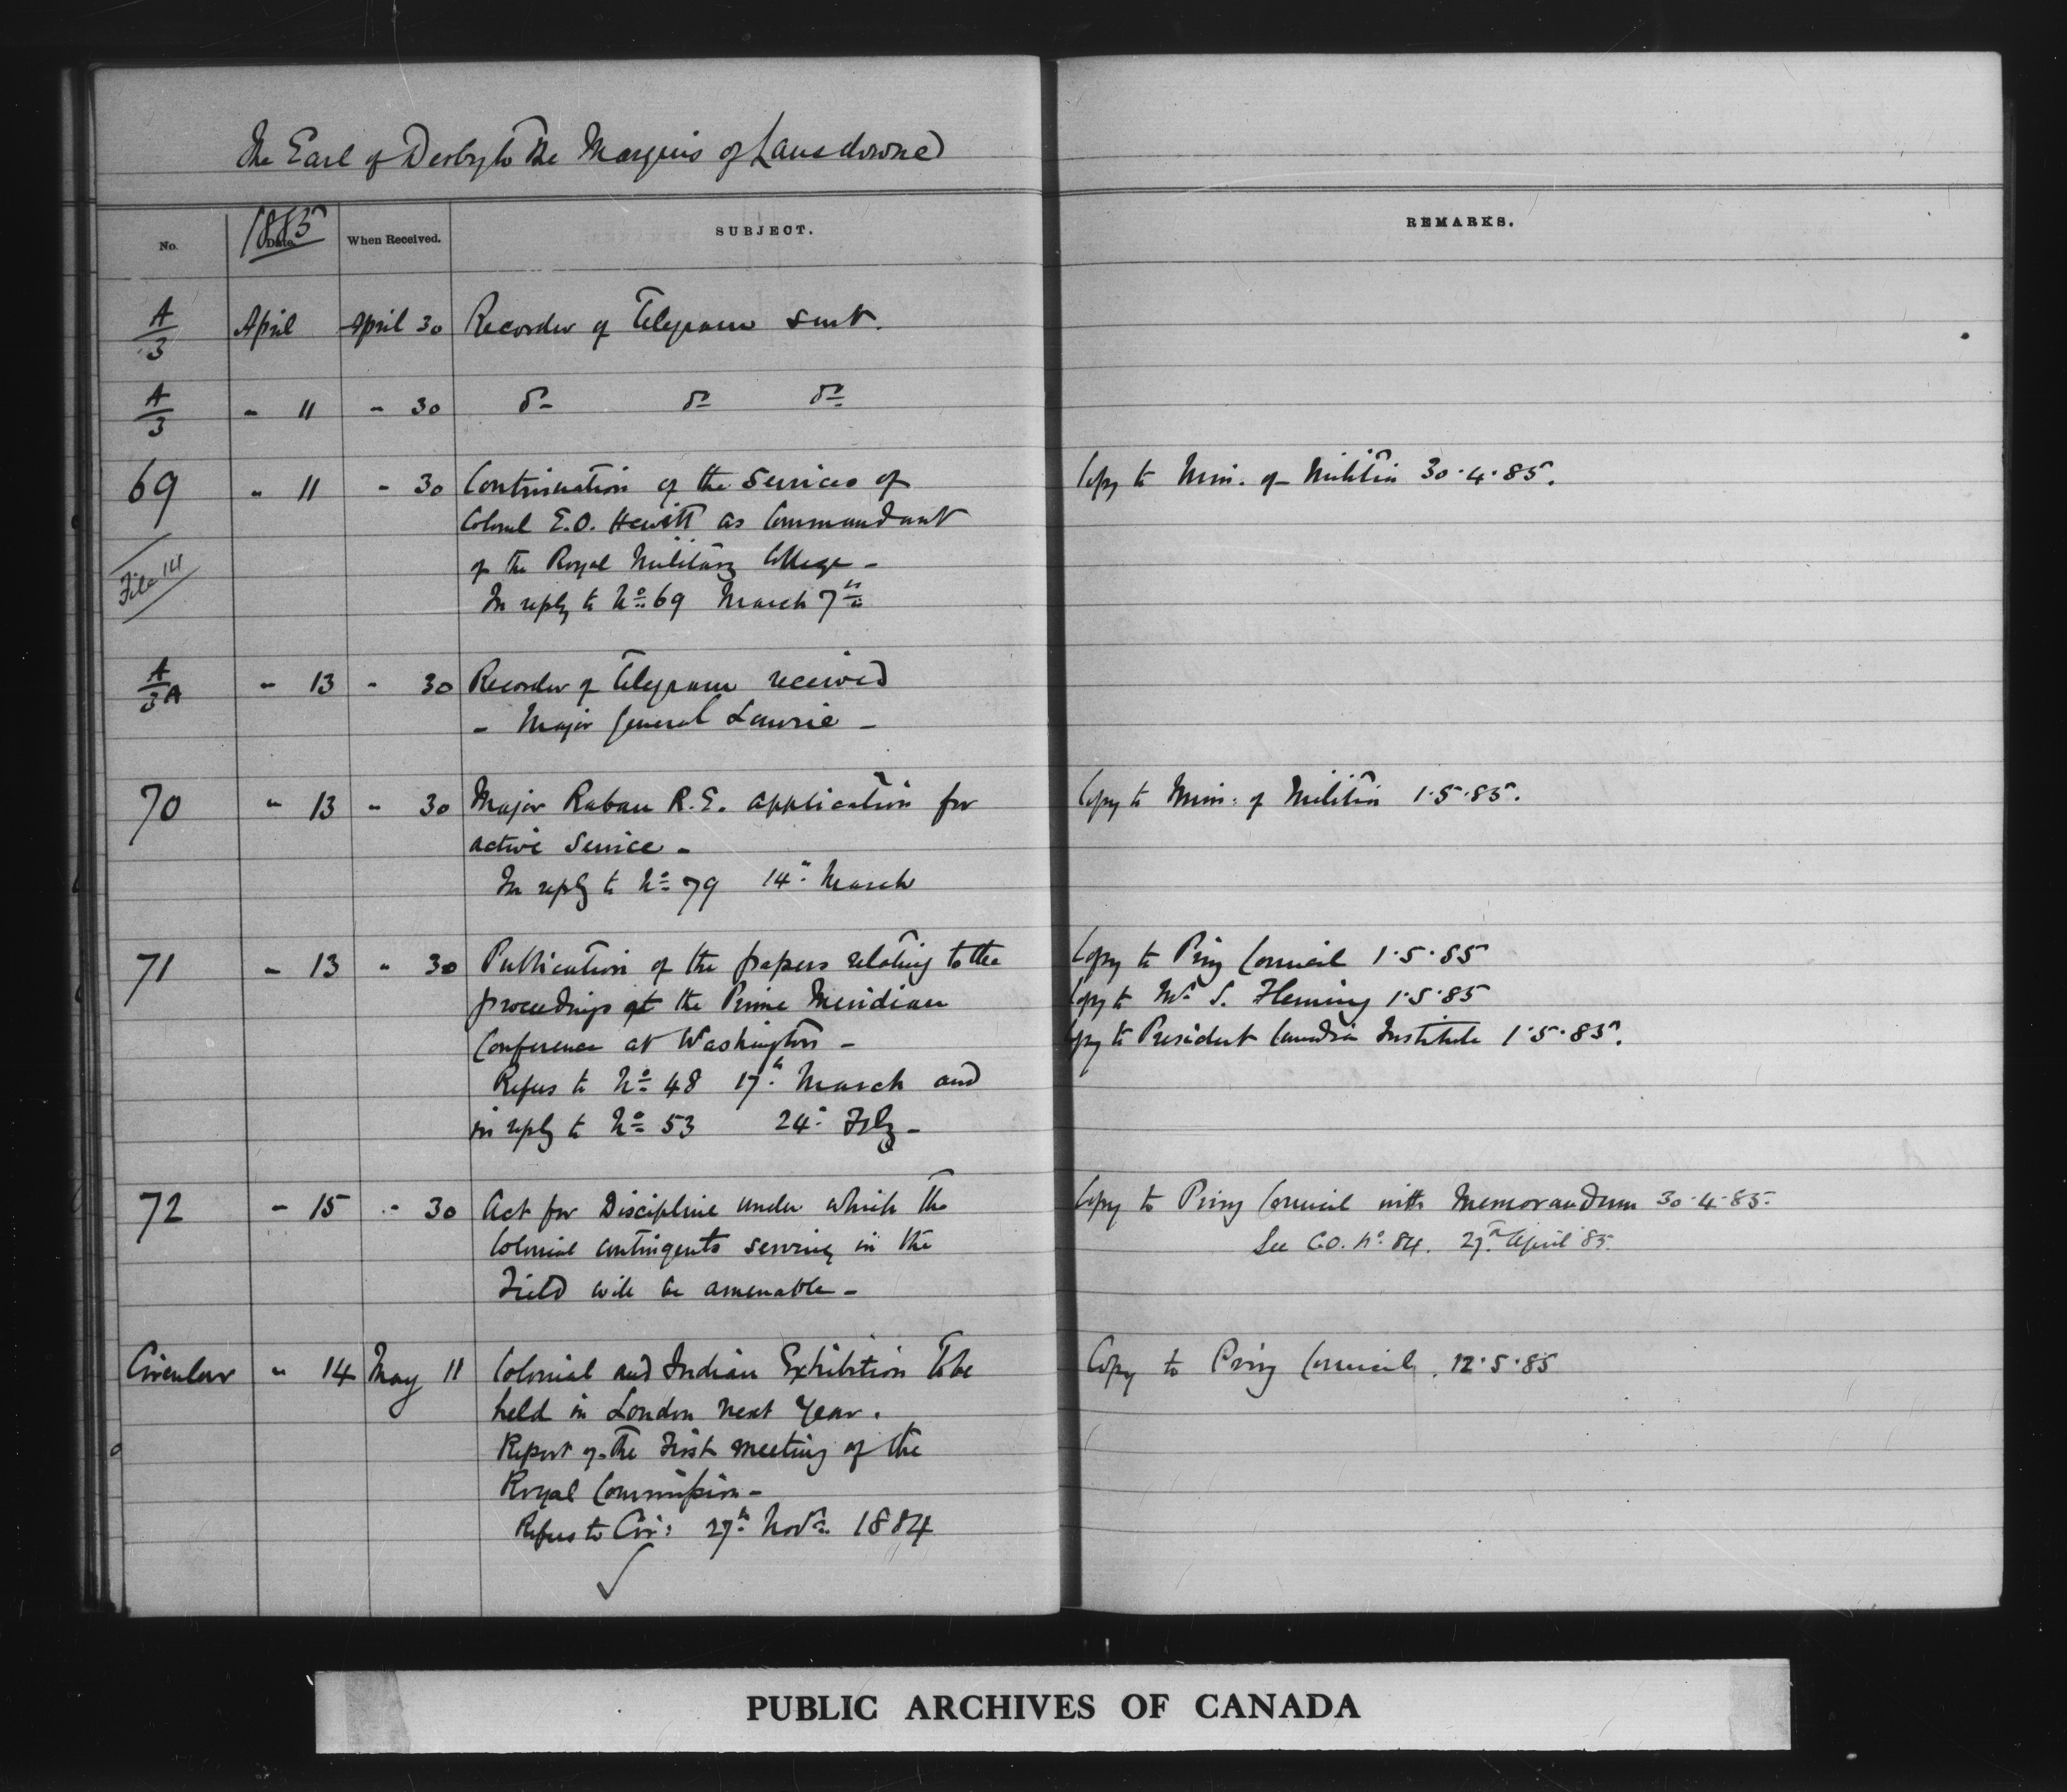 The Earl of Derby to The Marquis of Lansdowne
No. 1885 Date. When Received. SUBJECT. REMARKS.
A/3 April April 30 Recorder of Telegram sent.
A/3 " 11 " 30 Do Do Do
69 " 11 " 30 Continuation of the services of Copy to Min. of Militia 30.4.85.
Colonel E.O. Hewitt as Commandant
File 141 of the Royal Military College -
In reply to No 69 March 7th
A/3A " 13 " 30 Recorder of Telegram received
- Major General Laurie -
70 " 13 " 30 Major Raban R.E. application for Copy to Min: of Militia 1.5.85.
active service -
In reply to No 79 14" March
71 " 13 " 30 Publication of the papers relating to the Copy to Privy Council 1.5.85
proceedings at the Prime Meridian Copy to Mr S. Fleming 1.5.85
Conference at Washington - Copy to President Canadian Institute 1.5.85.
Refers to No 48 17th March and
in reply to No 53 24" Feby -
72 " 15 " 30 Act for Discipline under which the Copy to Privy Council with Memorandum 30.4.85.
Colonial contingents serving in the See C.O. No 84. 27th April 85.
Field will be amenable -
Circular " 14 May 11 Colonial and Indian Exhibition to be Copy to Privy Council. 12.5.85
held in London next year.
Report of the First meeting of the
Royal Commission -
Refers to Cir: 27th Novr 1884
PUBLIC ARCHIVES OF CANADA